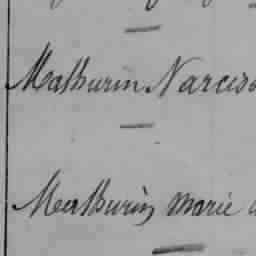 Mathurin Narciss
Mathurin Marie